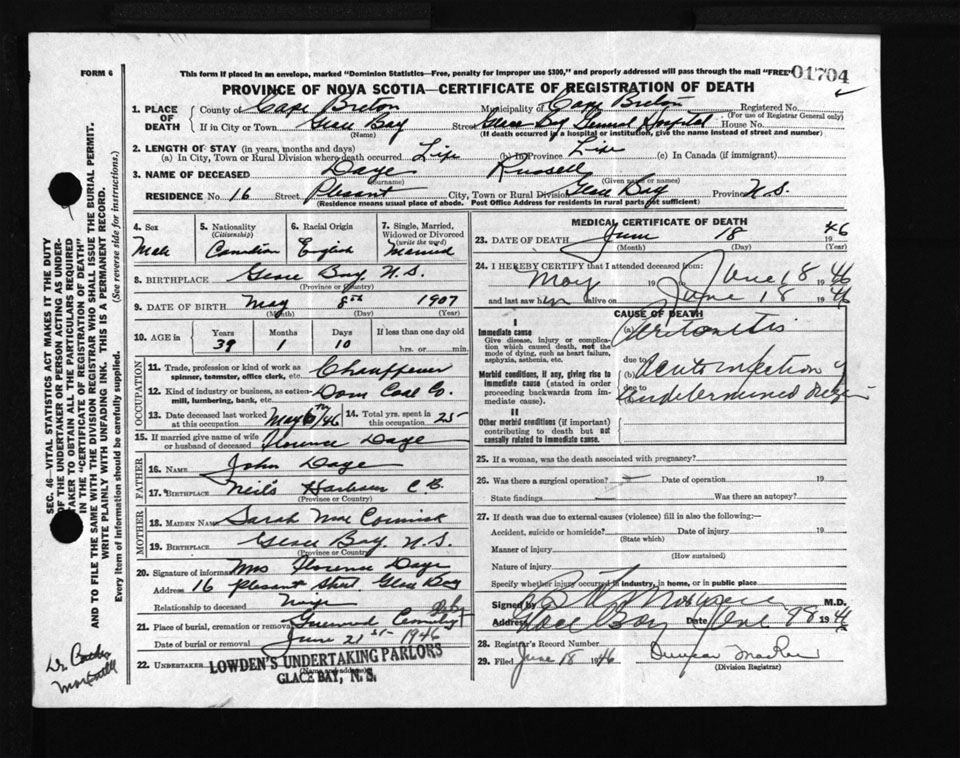 FORM 6
This form if placed in an envelope, marked "Dominion Statistics—Free, penalty for improper use $300," and properly addressed will pass through the mail "FREE"
01704
PROVINCE OF NOVA SCOTIA—CERTIFICATE OF REGISTRATION OF DEATH
1. PLACE OF DEATH
County of Cape Breton Municipality of Cape Breton Registered No.
(For use of Registrar General only)
If in City or Town Glace Bay Street Glace Bay General Hospital House No.
(Name) (If death occurred in a hospital or institution, give the name instead of street and number)
2. LENGTH OF STAY (in years, months and days)
(a) In City, Town or Rural Division where death occurred Life (b) In Province Life (c) In Canada (if immigrant)
3. NAME OF DECEASED Daye Russell
(Surname) (Given name or names)
RESIDENCE No. 16 Street Pleasant City, Town or Rural Division Glace Bay Province N.S.
(Residence means usual place of abode. Post Office Address for residents in rural parts not sufficient)
4. Sex
Male
5. Nationality (Citizenship)
Canadian
6. Racial Origin
English
7. Single, Married, Widowed or Divorced (write the word)
Married
8. BIRTHPLACE Glace Bay N.S.
(Province or Country)
9. DATE OF BIRTH May 8th 1907
(Month) (Day) (Year)
10. AGE in Years 39 Months 1 Days 10 If less than one day old
hrs. or min.
OCCUPATION
11. Trade, profession or kind of work as spinner, teamster, office clerk, etc. Chauffeur
12. Kind of industry or business, as cotton-mill, lumbering, bank, etc. Dom Coal Co.
13. Date deceased last worked at this occupation May 6th/46 14. Total yrs. spent in this occupation 25
15. If married give name of wife or husband of deceased Florence Daye
FATHER
16. NAME John Daye
17. BIRTHPLACE Neil's Harbour C.B.
(Province or Country)
MOTHER
18. MAIDEN NAME Sarah McCormick
19. BIRTHPLACE Glace Bay N.S.
(Province or Country)
20. Signature of informant Mrs Florence Daye
Address 16 Pleasant Street Glace Bay
Relationship to deceased Wife
21. Place of burial, cremation or removal Greenwood Cemetery
Date of burial or removal June 21st 1946
22. UNDERTAKER LOWDEN'S UNDERTAKING PARLORS
(Name and address)
GLACE BAY, N. S.
MEDICAL CERTIFICATE OF DEATH
23. DATE OF DEATH June 18 1946
(Month) (Day) (Year)
24. I HEREBY CERTIFY that I attended deceased from:
May 19 to June 18 1946
and last saw him alive on June 18 1946
CAUSE OF DEATH
I
Immediate cause
Give disease, injury or complication which caused death, not the mode of dying, such as heart failure, asphyxia, asthenia, etc.
(a) Peritonitis
due to
Morbid conditions, if any, giving rise to immediate cause (stated in order proceeding backwards from immediate cause).
(b) Acute infection of
due to
undetermined origin
II
Other morbid conditions (if important) contributing to death but not causally related to immediate cause.
25. If a woman, was the death associated with pregnancy?
26. Was there a surgical operation? Date of operation 19
State findings Was there an autopsy?
27. If death was due to external causes (violence) fill in also the following:—
Accident, suicide or homicide? Date of injury 19
(State which)
Manner of injury
(How sustained)
Nature of injury
Specify whether injury occurred in industry, in home, or in public place
Signed by M.D.
Address Glace Bay Date June 1946
28. Registrar's Record Number
29. Filed June 18 1946 Duncan MacRae
(Division Registrar)
SEC. 46—VITAL STATISTICS ACT MAKES IT THE DUTY OF THE UNDERTAKER OR PERSON ACTING AS UNDERTAKER TO OBTAIN ALL THE PARTICULARS REQUIRED IN THE "CERTIFICATE OF REGISTRATION OF DEATH" AND TO FILE THE SAME WITH THE DIVISION REGISTRAR WHO SHALL ISSUE THE BURIAL PERMIT.
WRITE PLAINLY WITH UNFADING INK. THIS IS A PERMANENT RECORD.
Every item of information should be carefully supplied. (See reverse side for instructions.)
Dr.